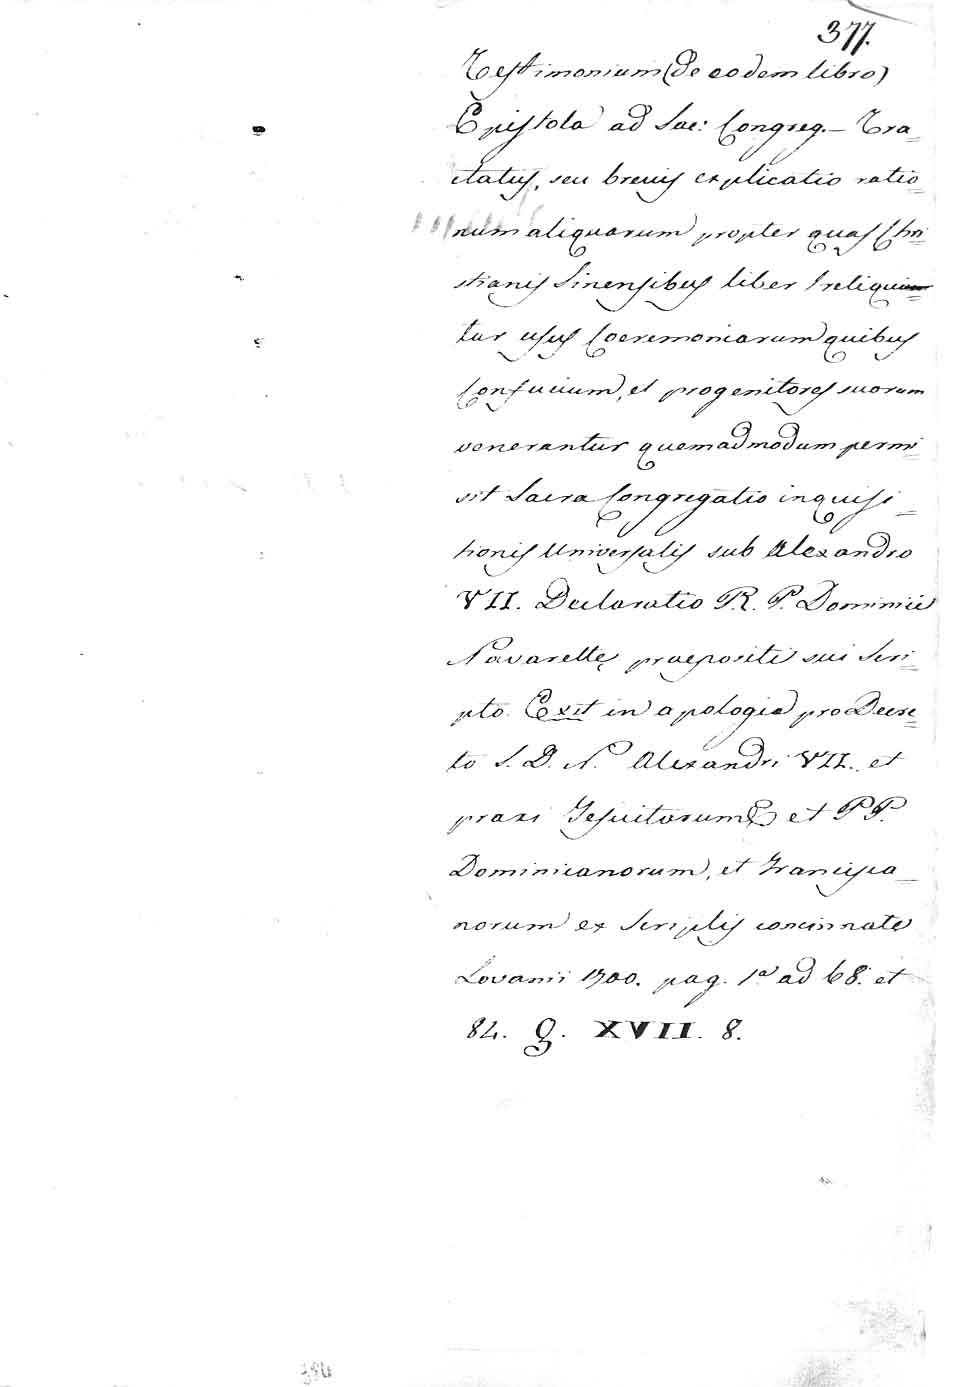 377.
Testimonium (de eodem libro)
Epistola ad Sac: Congreg. – Tra=
ctatus, seu brevis explicatio ratio=
num aliquarum propter quas Chri=
stianis Sinensibus liber relinqui=
tur usus Coeremoniarum quibus
Confucium, et progenitores suorum
venerantur quemadmodum permi=
sit Sacra Congregatio inquisi=
tionis Universalis sub Alexandro
VII. Declaratio R. P. Dominici
Navarette praepositi sui Scri=
pto. Exit in apologia pro Decre=
to S. D. N. Alexandri VII. et
praxi Jesuitarum et PP.
Dominicanorum, et Francisca=
norum ex Scriptis concinnate
Lovanii 1700. pag. 1a ad 68. et
84. Q. XVII. 8.
384